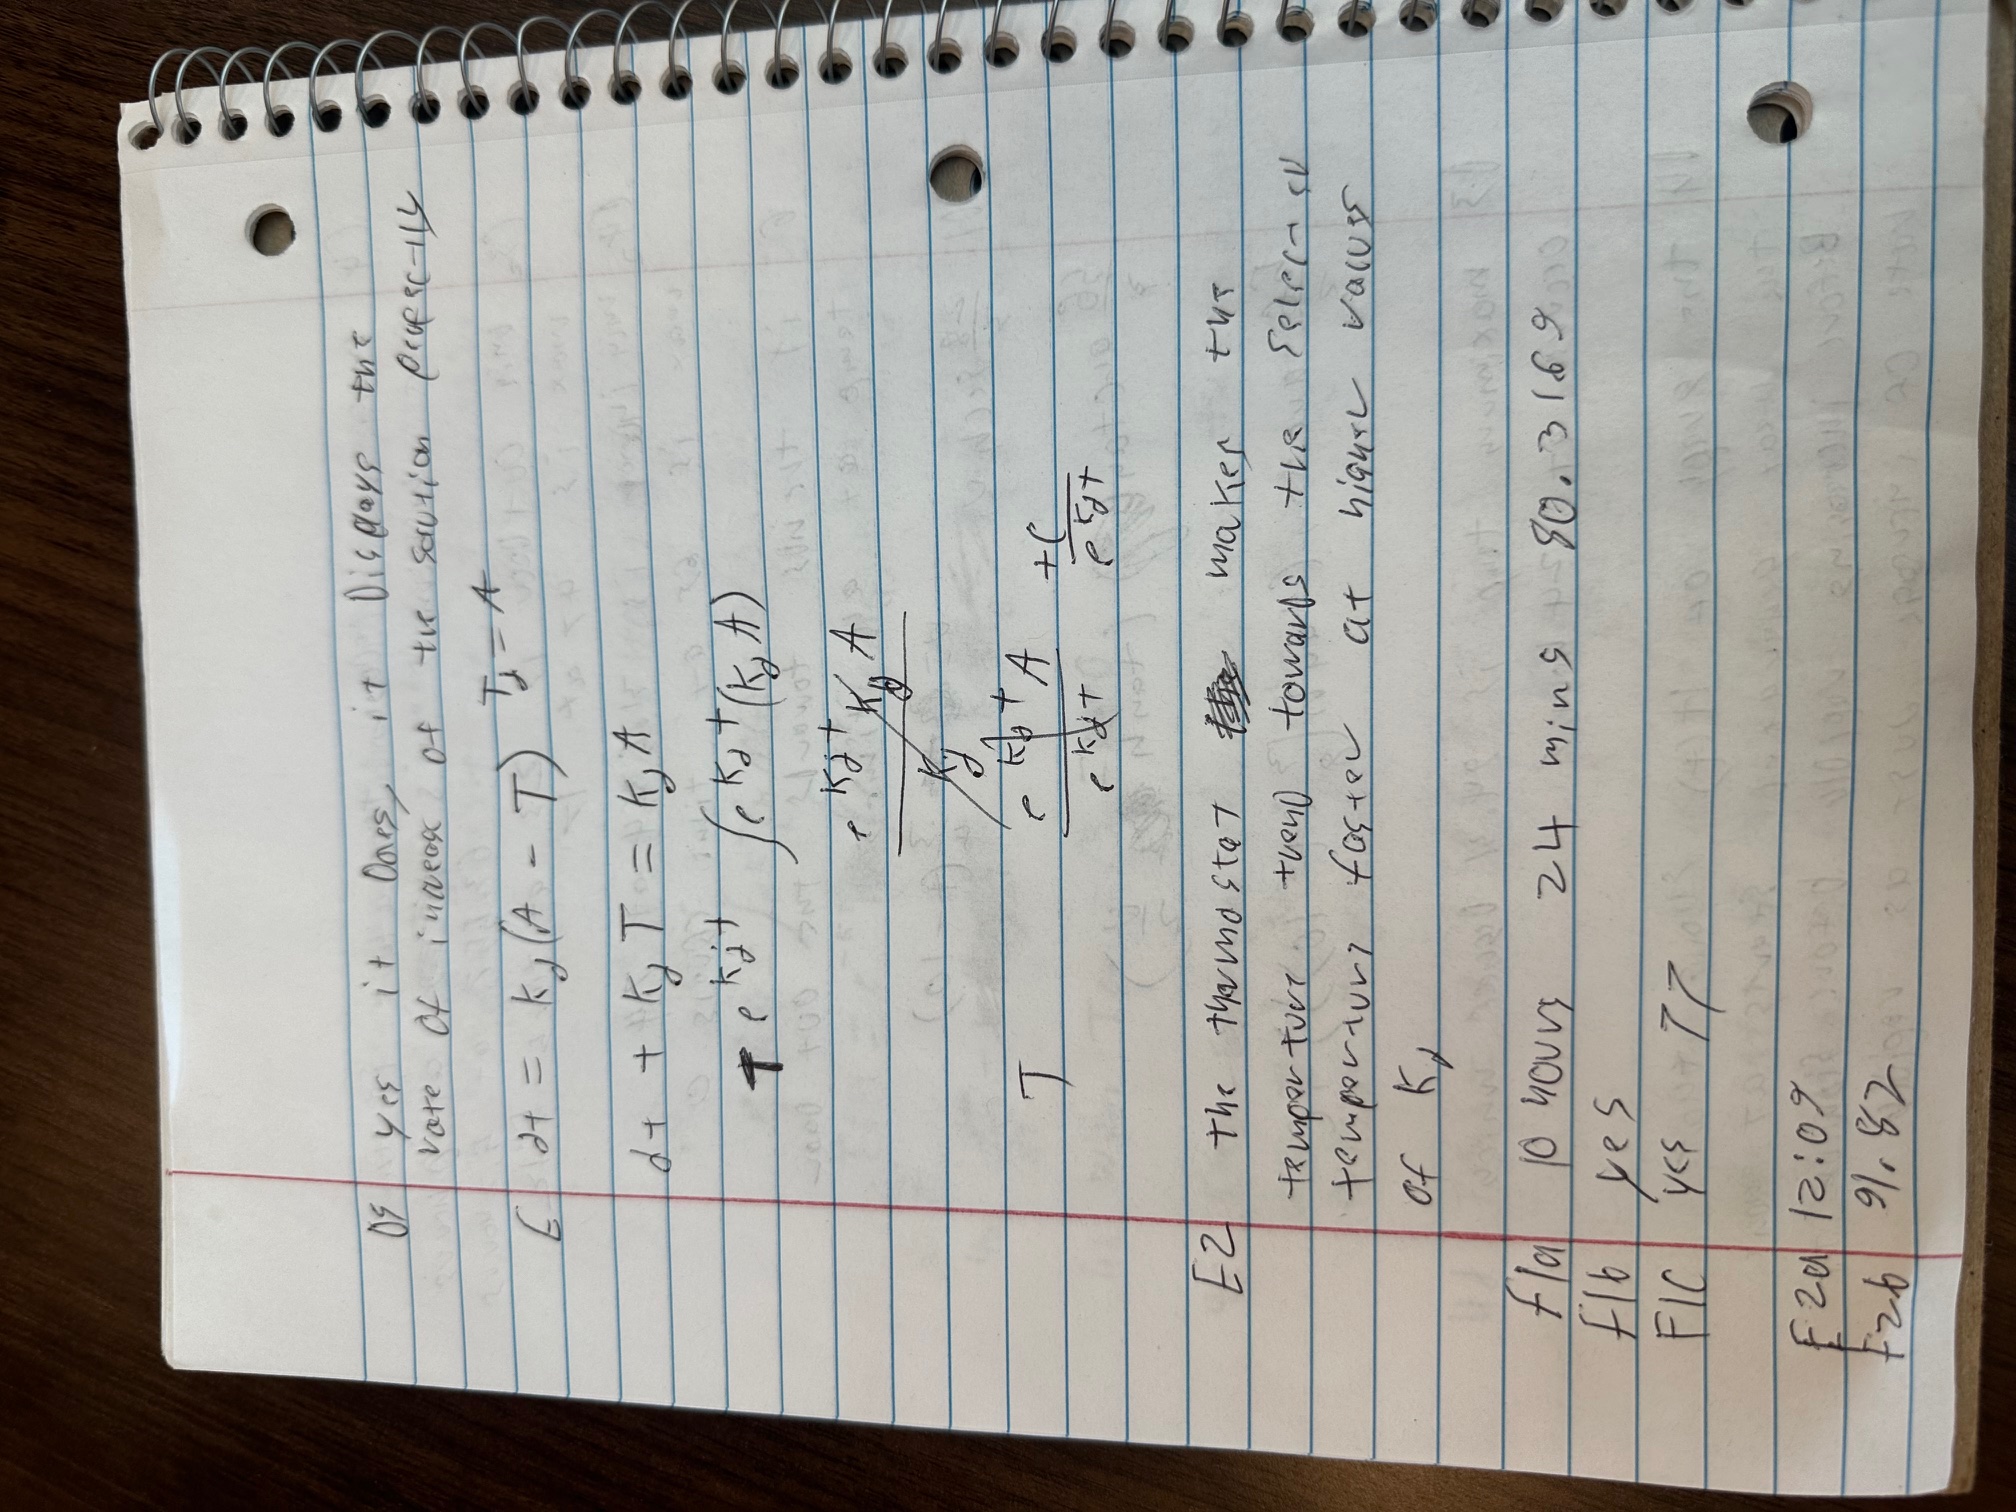 D5 yes it Does, it Displays the
rate Of increase of the solution properly
E dt = Kd(A - T) Td = A
dt + Kd T = Kd A
T e^Kdt ∫e^Kdt(Kd A)
e^Kdt Kd A
Kd
T e^Kdt A +C
e^Kdt e^Kdt
E2 the thermostat makes the
temperture trend towards the selected
temperture faster at higher values
of Kd
F1a 10 hours 24 mins 80.3169
F1b yes
F1C yes 77
F2a 12:09
F2b 91.82